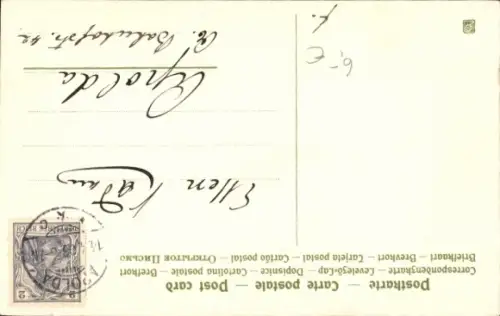 Postkarte — Carte postale — Post card
Correspondenzkarte — Levelező-Lap — Dopisnice — Cartolina postale — Brefkort
Briefkaart — Brevkort — Carta postal — Cartão postal — Открытое Письмо
Ellen
Apolda
Bahnhofstr. 42
6,- €
APOLDA
2
2